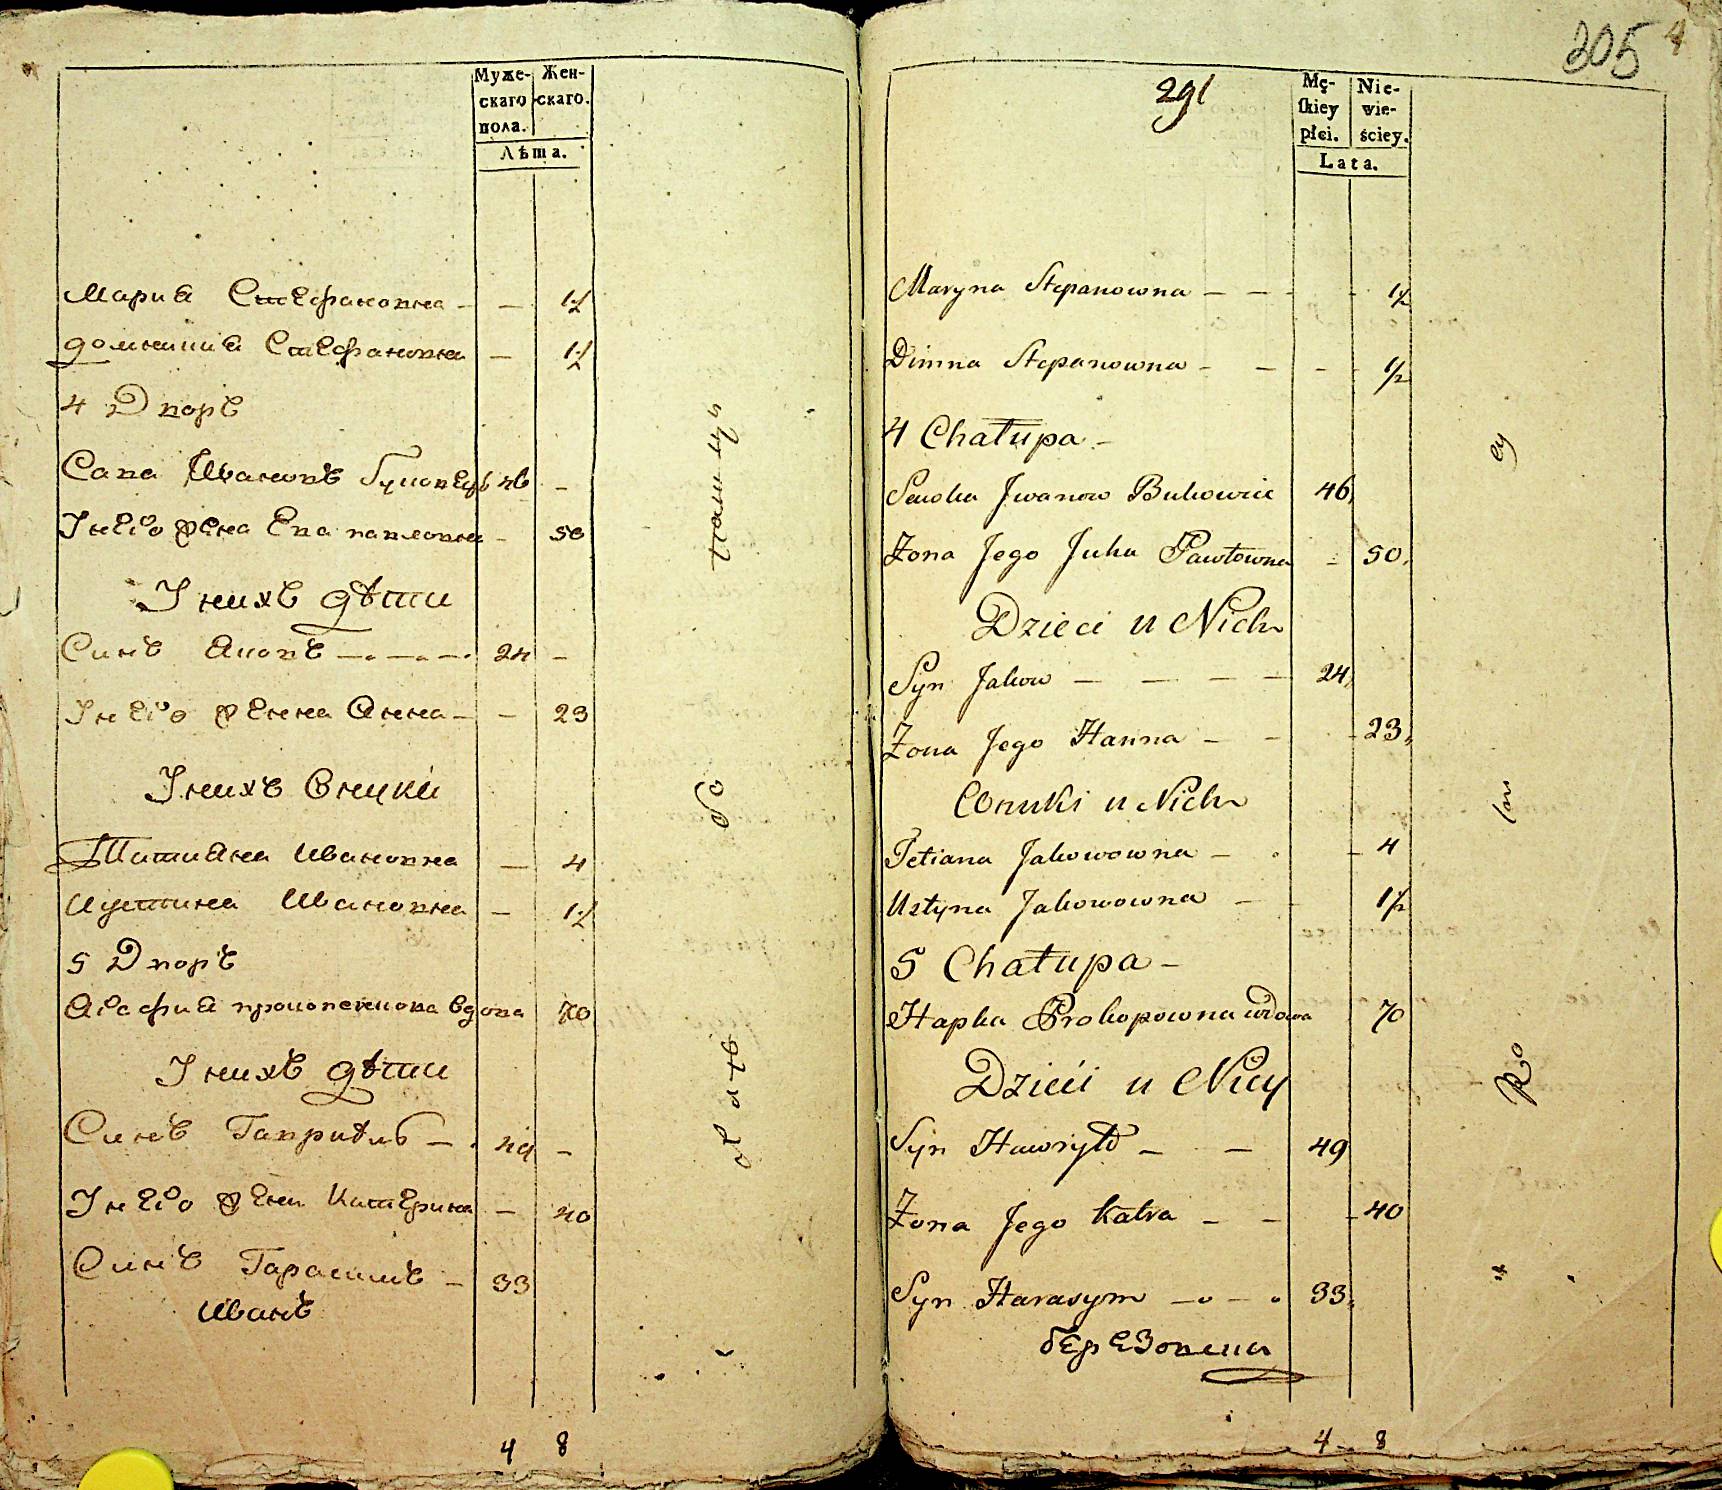 Муже-
скаго
пола.
Жен-
скаго.
Лѣта.
Мария Стефановна - - 1½
Домникия Стефановна - 1½
4 Дворъ
Сава Ивановъ 46 -
У него жена Ева павловна - 50
У нихъ дѣти
Синъ Яковъ - 24 -
У него женна Анна - - 23
У нихъ Внуки
Татияна Ивановна - 4
Иустина Ивановна - 1½
5 Дворъ
Агафия прокопенкова вдова 70
У нихъ дѣти
Синъ Гавриилъ - 49 -
У него жена Катерина - 40
Синъ Гарасимъ - 33
Иванъ
4 8
305
291
Mę-
skiey
płci.
Nie-
wie-
ściey.
Lata.
Maryna Stepanowna - - - - 1½
Dimna Stepanowna - - - 1½
4 Chałupa -
Sawka Jwanow Bukowiec 46
Zona Jego Juha Pawłowna - 50
Dzieci u Nich
Syn Jakow - - - - 24
Zona Jego Hanna - - - 23
Wnuki u Nich
Tetiana Jakowowna - - 4
Ustyna Jakowowna - - 1½
5 Chałupa -
Hapka Prokopowna wdowa 70
Dzieci u Niey
Syn Hawryło - - 49
Zona Jego Katra - - - 40
Syn Harasym - - 33
4 8